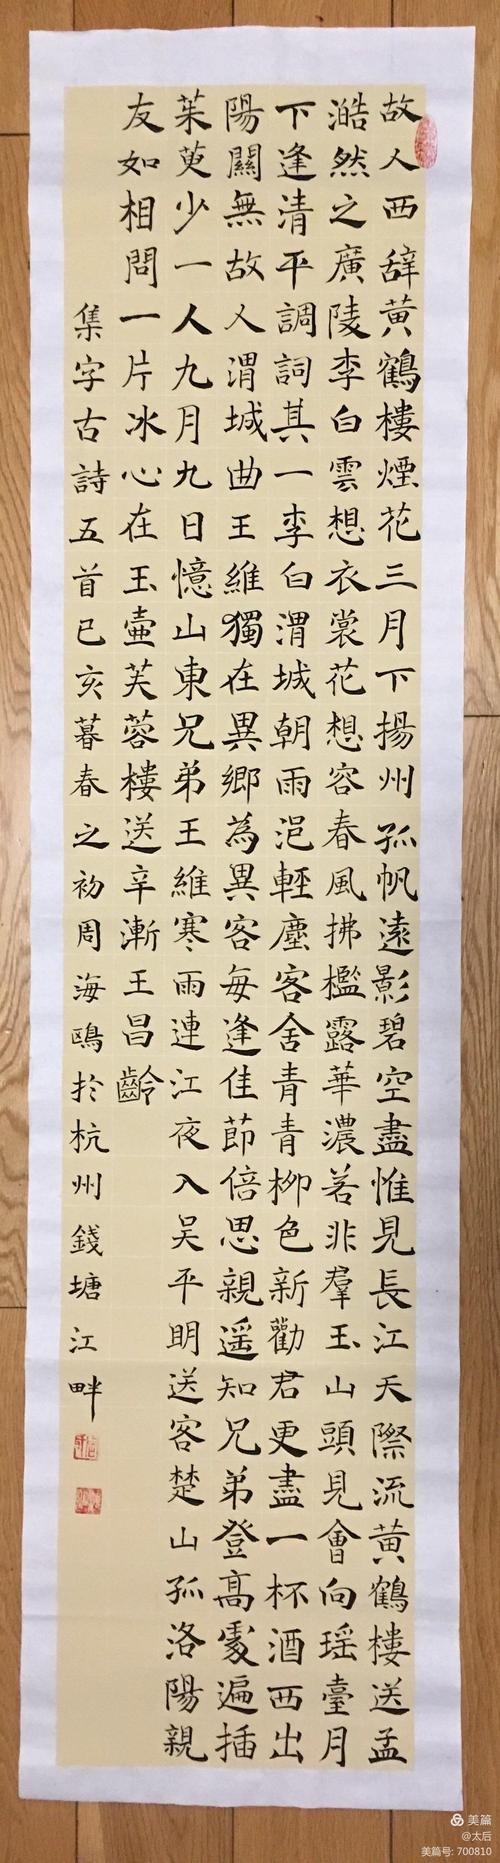 故人西辞黄鶴樓煙花三月下揚州孤帆遠影碧空盡惟見長江天際流黄鶴樓送孟
澔然之廣陵李白雲想衣裳花想容春風拂檻露華濃若非羣玉山頭見會向瑶臺月
下逢清平調詞其一李白渭城朝雨浥輕塵客舍青青柳色新勸君更盡一杯酒西出
陽關無故人渭城曲王維獨在異鄉為異客每逢佳節倍思親遥知兄弟登高處遍插
茱萸少一人九月九日憶山東兄弟王維寒雨連江夜入吴平明送客楚山孤洛陽親
友如相問一片冰心在玉壷芙蓉樓送辛漸王昌齡
集字古詩五首已亥暮春之初周海鷗於杭州錢塘江畔
美篇
@太后
美篇号: 700810